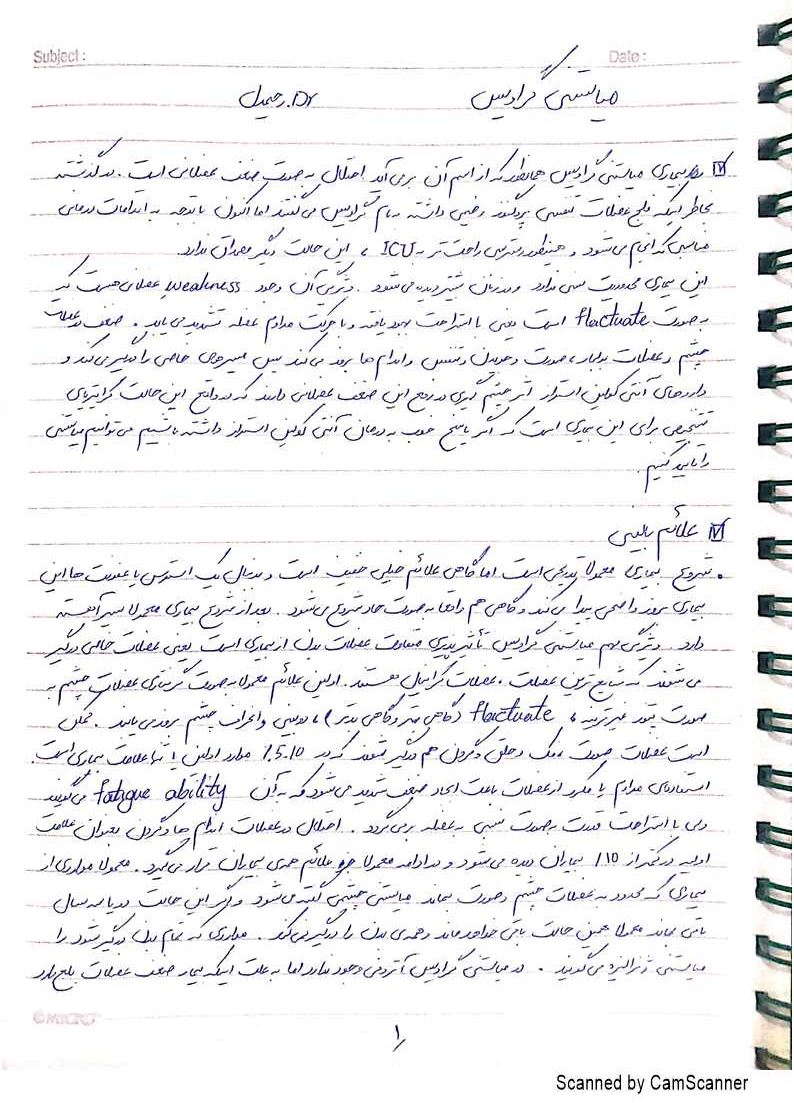 Subject :
Date :
میاستنی گراویس
Dr. رحیمدل
بیماری میاستنی گراویس همانطور که از اسم آن برمی‌آید اختلال به صورت ضعف عضلانی است. در گذشته
بخاطر اینکه فلج عضلات تنفسی وخیمی داشته به نام گراویس می‌گفتند اما اکنون با توجه به اقدامات درمانی
مناسبی که انجام می‌شود و همینطور دسترسی راحت‌تر به ICU ، این حالت دیگر مصداق ندارد.
این بیماری محدودیت سنی ندارد و در زنان بیشتر دیده می‌شود. ویژگی آن وجود weakness عضلانی هست که
به صورت fluctuate است یعنی با استراحت بهبود یافته و با حرکت مداوم عضله تشدید می‌یابد. ضعف در عضلات
چشم و عضلات بولبار، صورت و جویدن و تنفس و اندام‌ها بروز می‌کند پس خاصی را درگیر می‌کند و
داروهای آنتی کولین استراز اثر چشم گیری در رفع این ضعف عضلانی دارند که در واقع این حالت کرایتریای
تشخیصی برای این بیماری است که اگر پاسخ خوب به درمان آنتی کولین استراز داشته باشیم می‌توانیم میاستنی
را تایید کنیم.
علائم بالینی
• شروع بیماری معمولا تدریجی است اما گاهی علائم خیلی خفیف است و بدنبال یک استرس یا عفونت ها این
بیماری بروز واضحی پیدا می‌کند و گاهی هم واقعا به صورت حاد شروع می‌شود. بعد از شروع بیماری معمولا سیر آهسته
دارد. ویژگی مهم میاستنی گراویس تأثیرپذیری متفاوت عضلات بدن از بیماری است یعنی عضلات خاصی درگیر
می‌شوند که شایع ترین عضلات، عضلات کرانیال هستند. اولین علائم معمولا به صورت گرفتاری عضلات چشم به
صورت پتوز غیرقرینه، fluctuate (گاهی بهتر و گاهی بدتر)، دوبینی و انحراف چشم بروز می‌یابند. ممکن
است عضلات صورت، فک و حلق و گردن هم درگیر شوند که در 5.10٪ موارد اولین و تنها علامت بیماری است.
استفاده‌ی مداوم یا مکرر از عضلات باعث ایجاد ضعف شدید می‌شود که به آن fatigue ability می‌گویند
ولی با استراحت قدرت به صورت نسبی به عضله برمی‌گردد. اختلال در عضلات اندام ها و گردن بعنوان علامت
اولیه در کمتر از 10٪ بیماران دیده می‌شود و در ادامه معمولا جزو علائم جدی بیماران قرار می‌گیرد. معمولا مواردی از
بیماری که محدود به عضلات چشم و صورت بماند میاستنی چشمی گفته می‌شود و اگر این حالت دو یا سه سال
باقی بماند معمولا به همین حالت باقی خواهد ماند و همه‌ی بدن را درگیر نمی‌کند. مواردی که تمام بدن درگیر شود را
میاستنی ژنرالیزه می‌گویند. در میاستنی گراویس آتروفی وجود ندارد اما به علت اینکه بیمار ضعف عضلات بلع دارد
MICRO
۱
Scanned by CamScanner